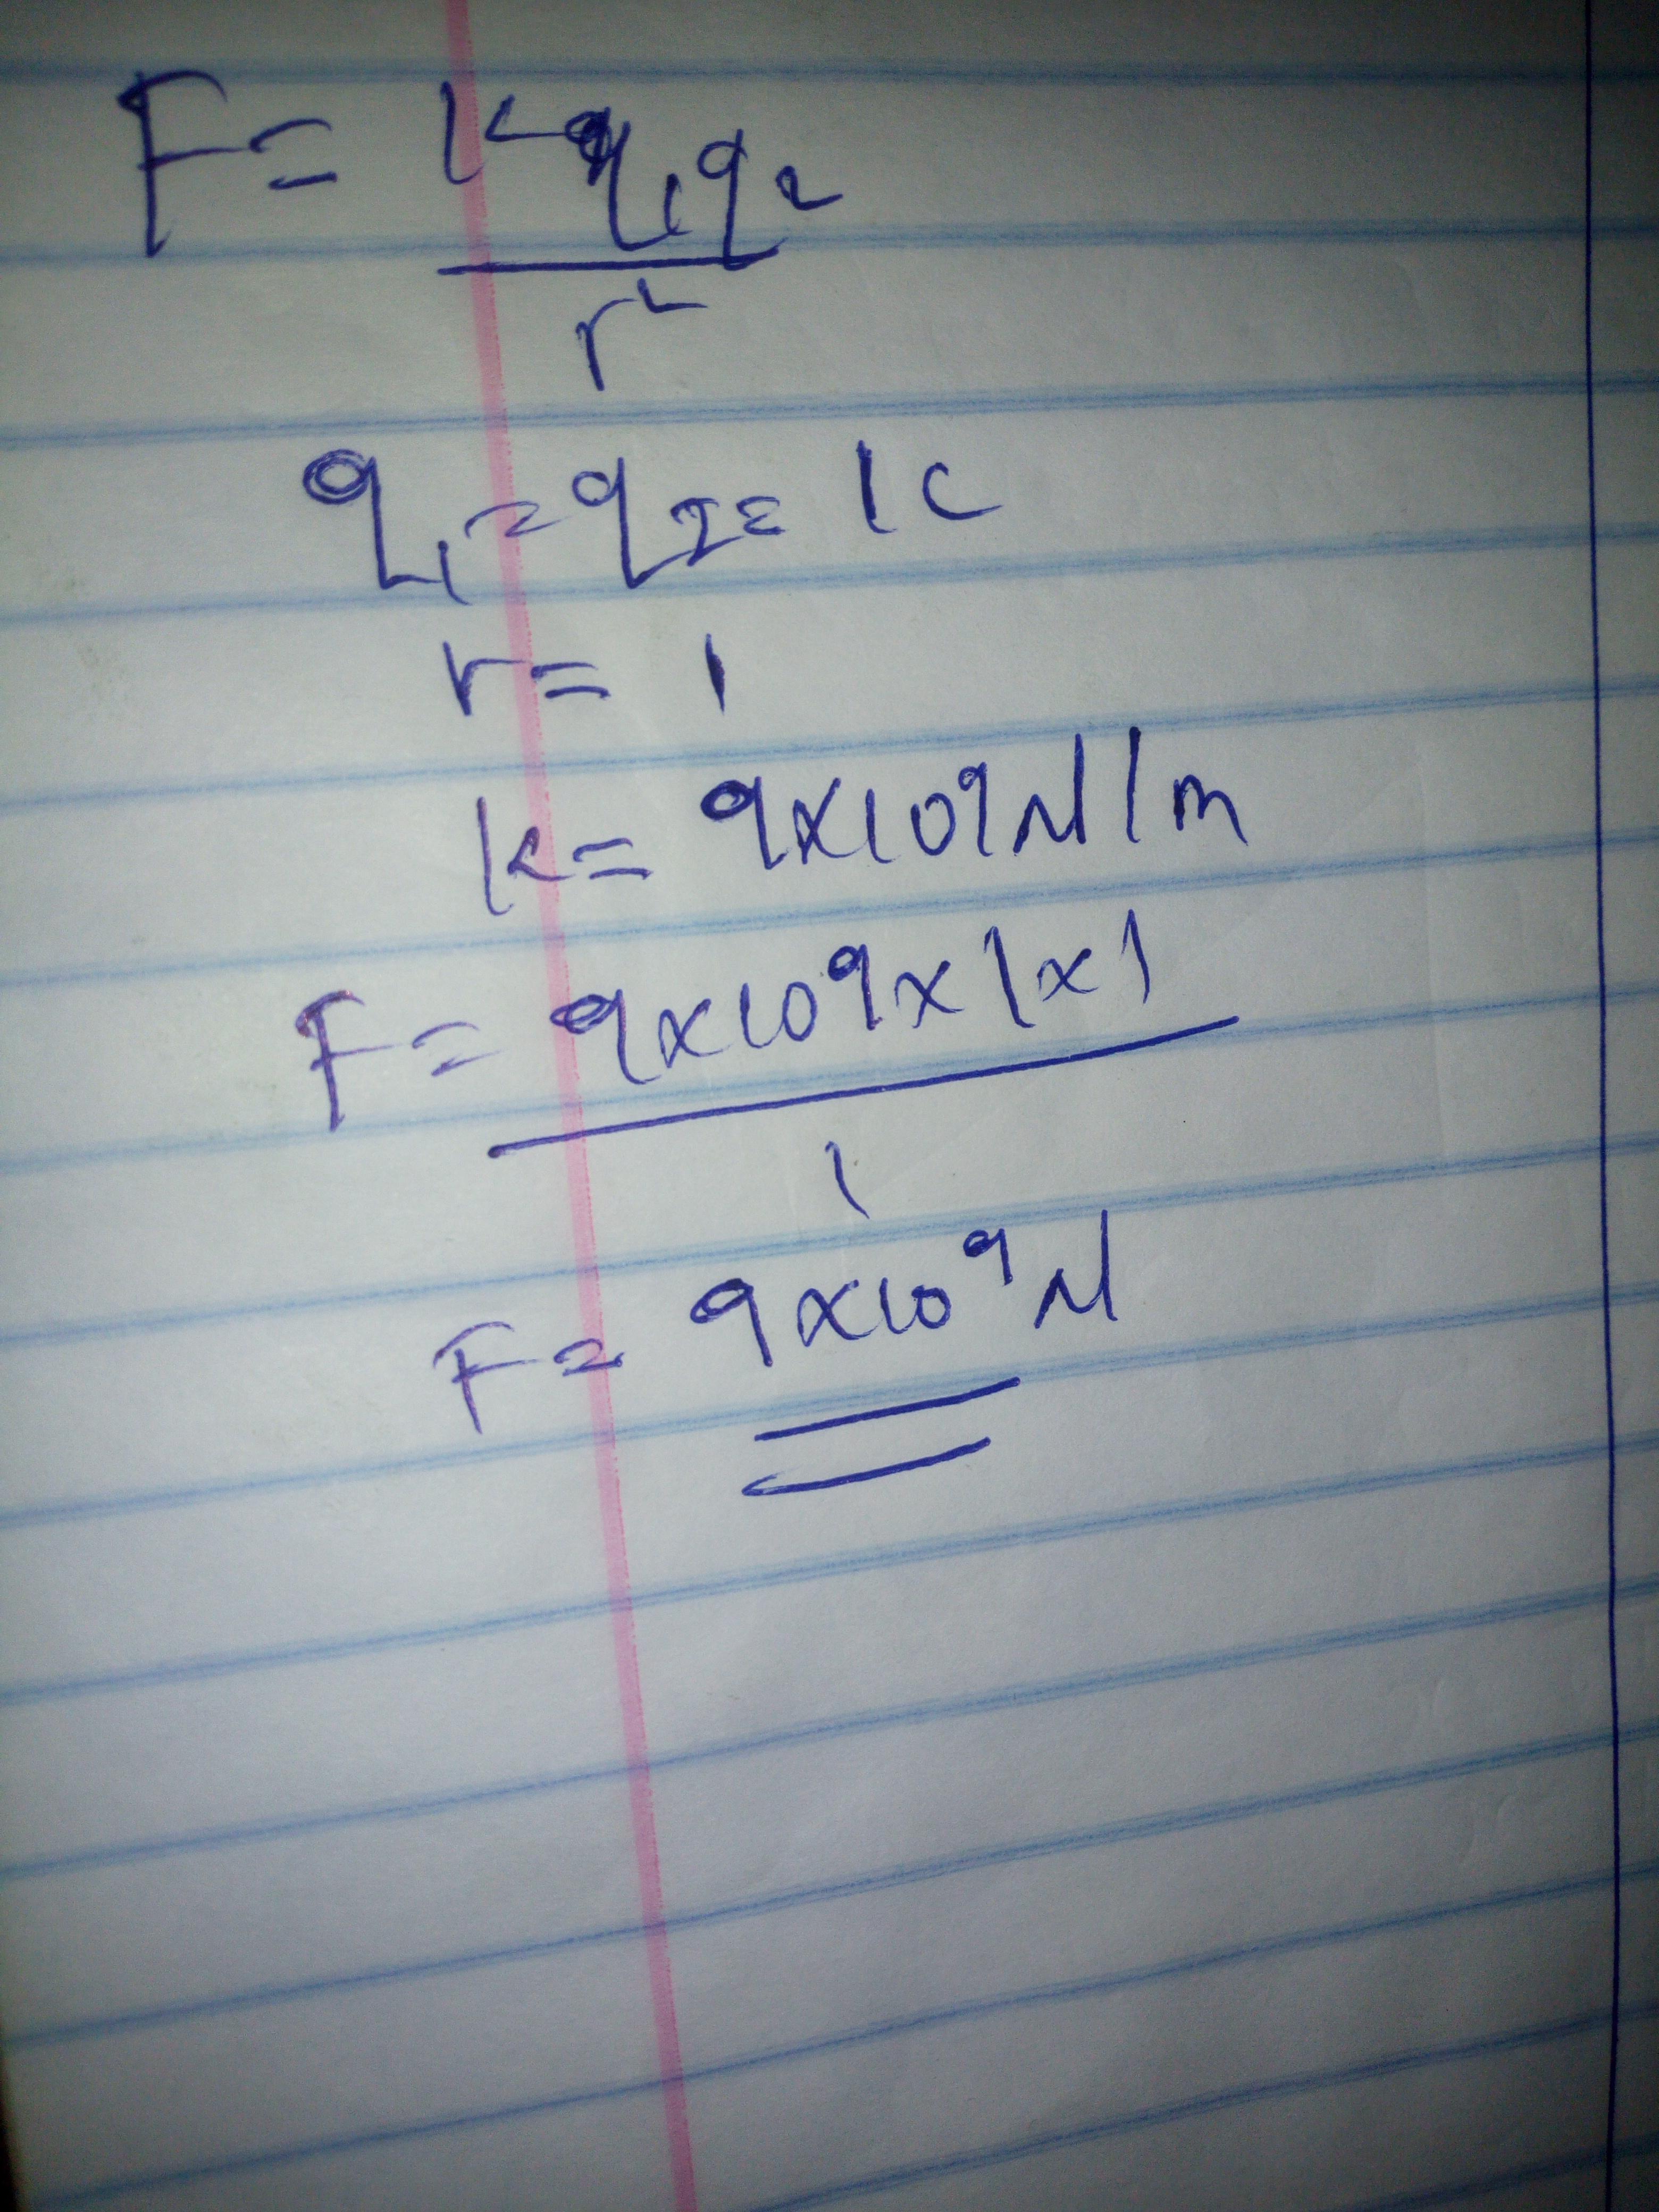 F = kq₁q₂
r²
q₁ = q₂ = 1C
r = 1
k = 9x10⁹N/m
F = 9x10⁹x1x1
1
F = 9x10⁹N